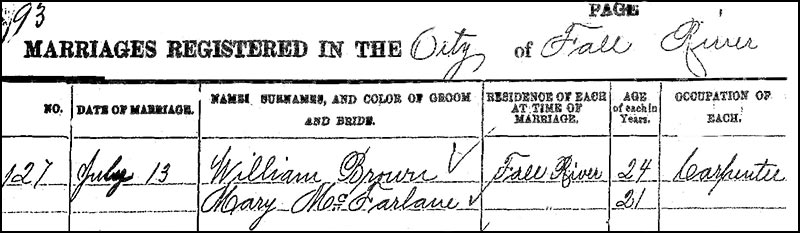 193
PAGE
MARRIAGES REGISTERED IN THE City of Fall River
NO. DATE OF MARRIAGE. NAMES, SURNAMES, AND COLOR OF GROOM AND BRIDE. RESIDENCE OF EACH AT TIME OF MARRIAGE. AGE of each in Years. OCCUPATION OF EACH.
127 July 13 William Brown ✓ Fall River 24 Carpenter
Mary McFarlane ✓ " 21